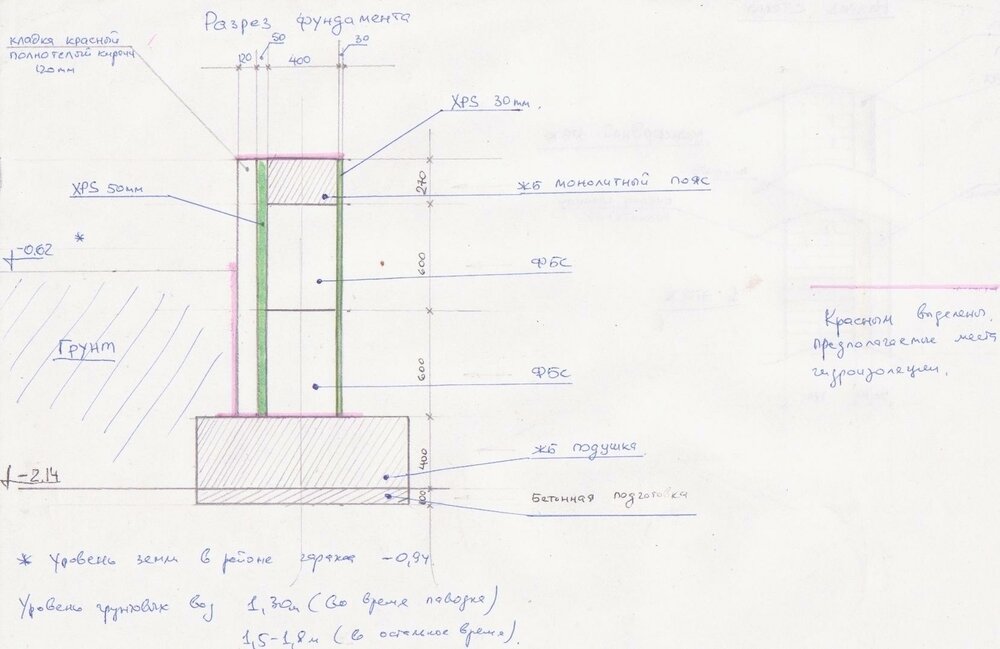 Разрез фундамента
кладка красный
полнотелый кирпич
120мм
50
30
120
400
XPS 30мм.
270
ЖБ монолитный пояс
XPS 50мм
*
-0.62
600
ФБС
Красным выделены
предполагаемые места
гидроизоляции.
Грунт
600
ФБС
400
ЖБ подушка
-2.14
100
Бетонная подготовка
* Уровень земли в районе гаража -0,94
Уровень грунтовых вод 1,30м (во время паводка)
1,5-1,8м (в остальное время).